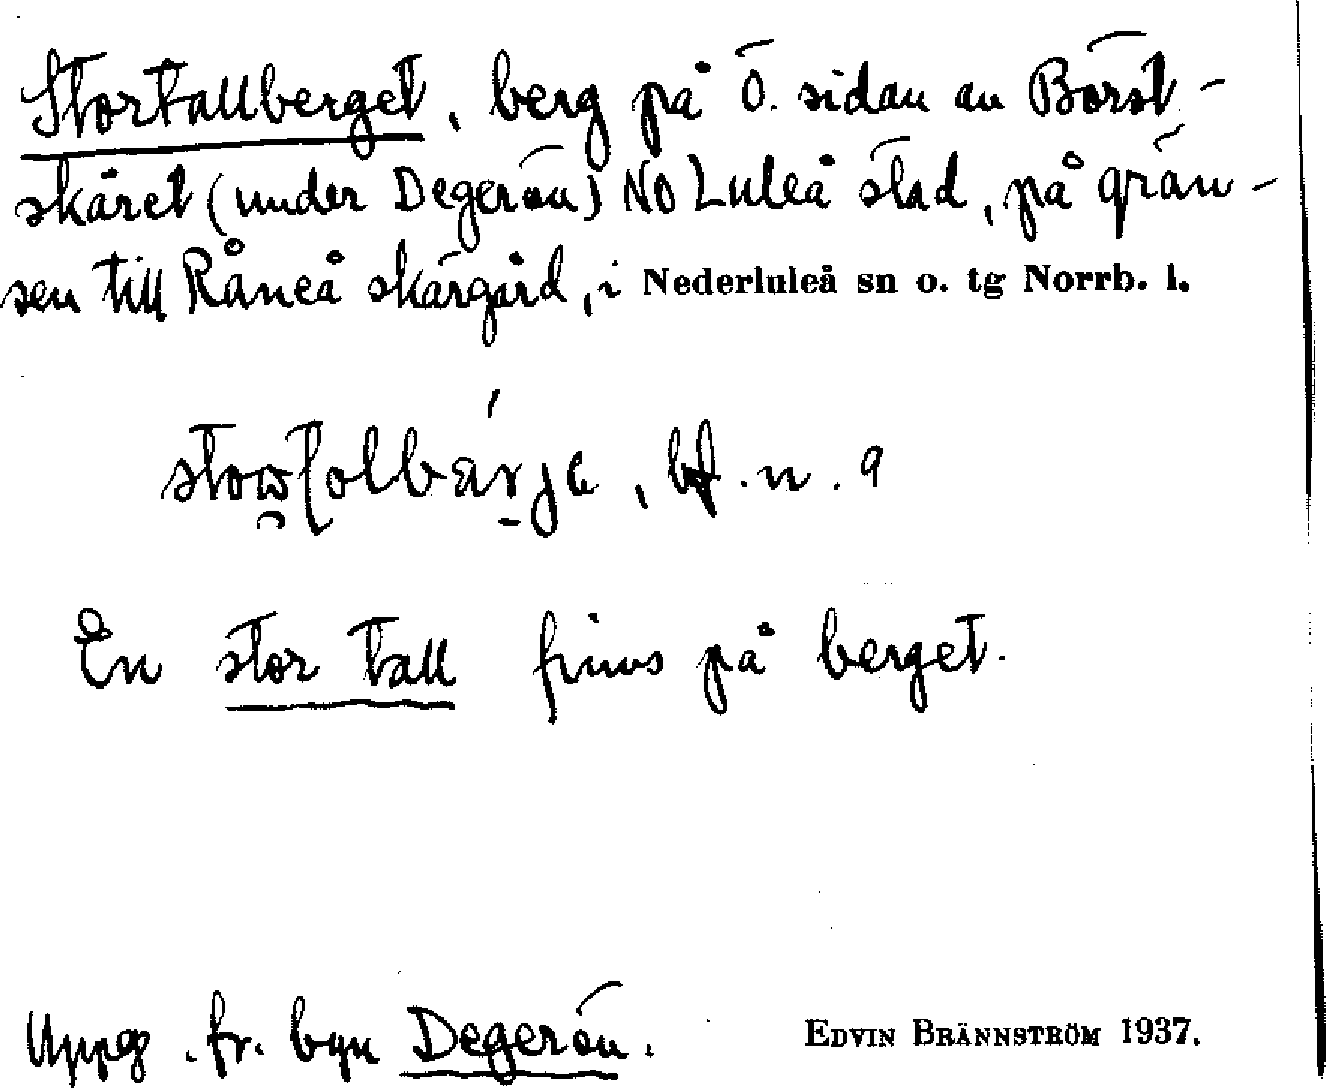 Stortallberget, berg på Ö. sidan av Börst-
skäret (under Degerön) NO Luleå stad, på grän-
sen till Råneå skärgård, i Nederluleå sn o. tg Norrb. l.
bf. n.
En stor tall finns på berget.
Uppg. fr. byn Degerön. EDVIN BRÄNNSTRÖM 1937.